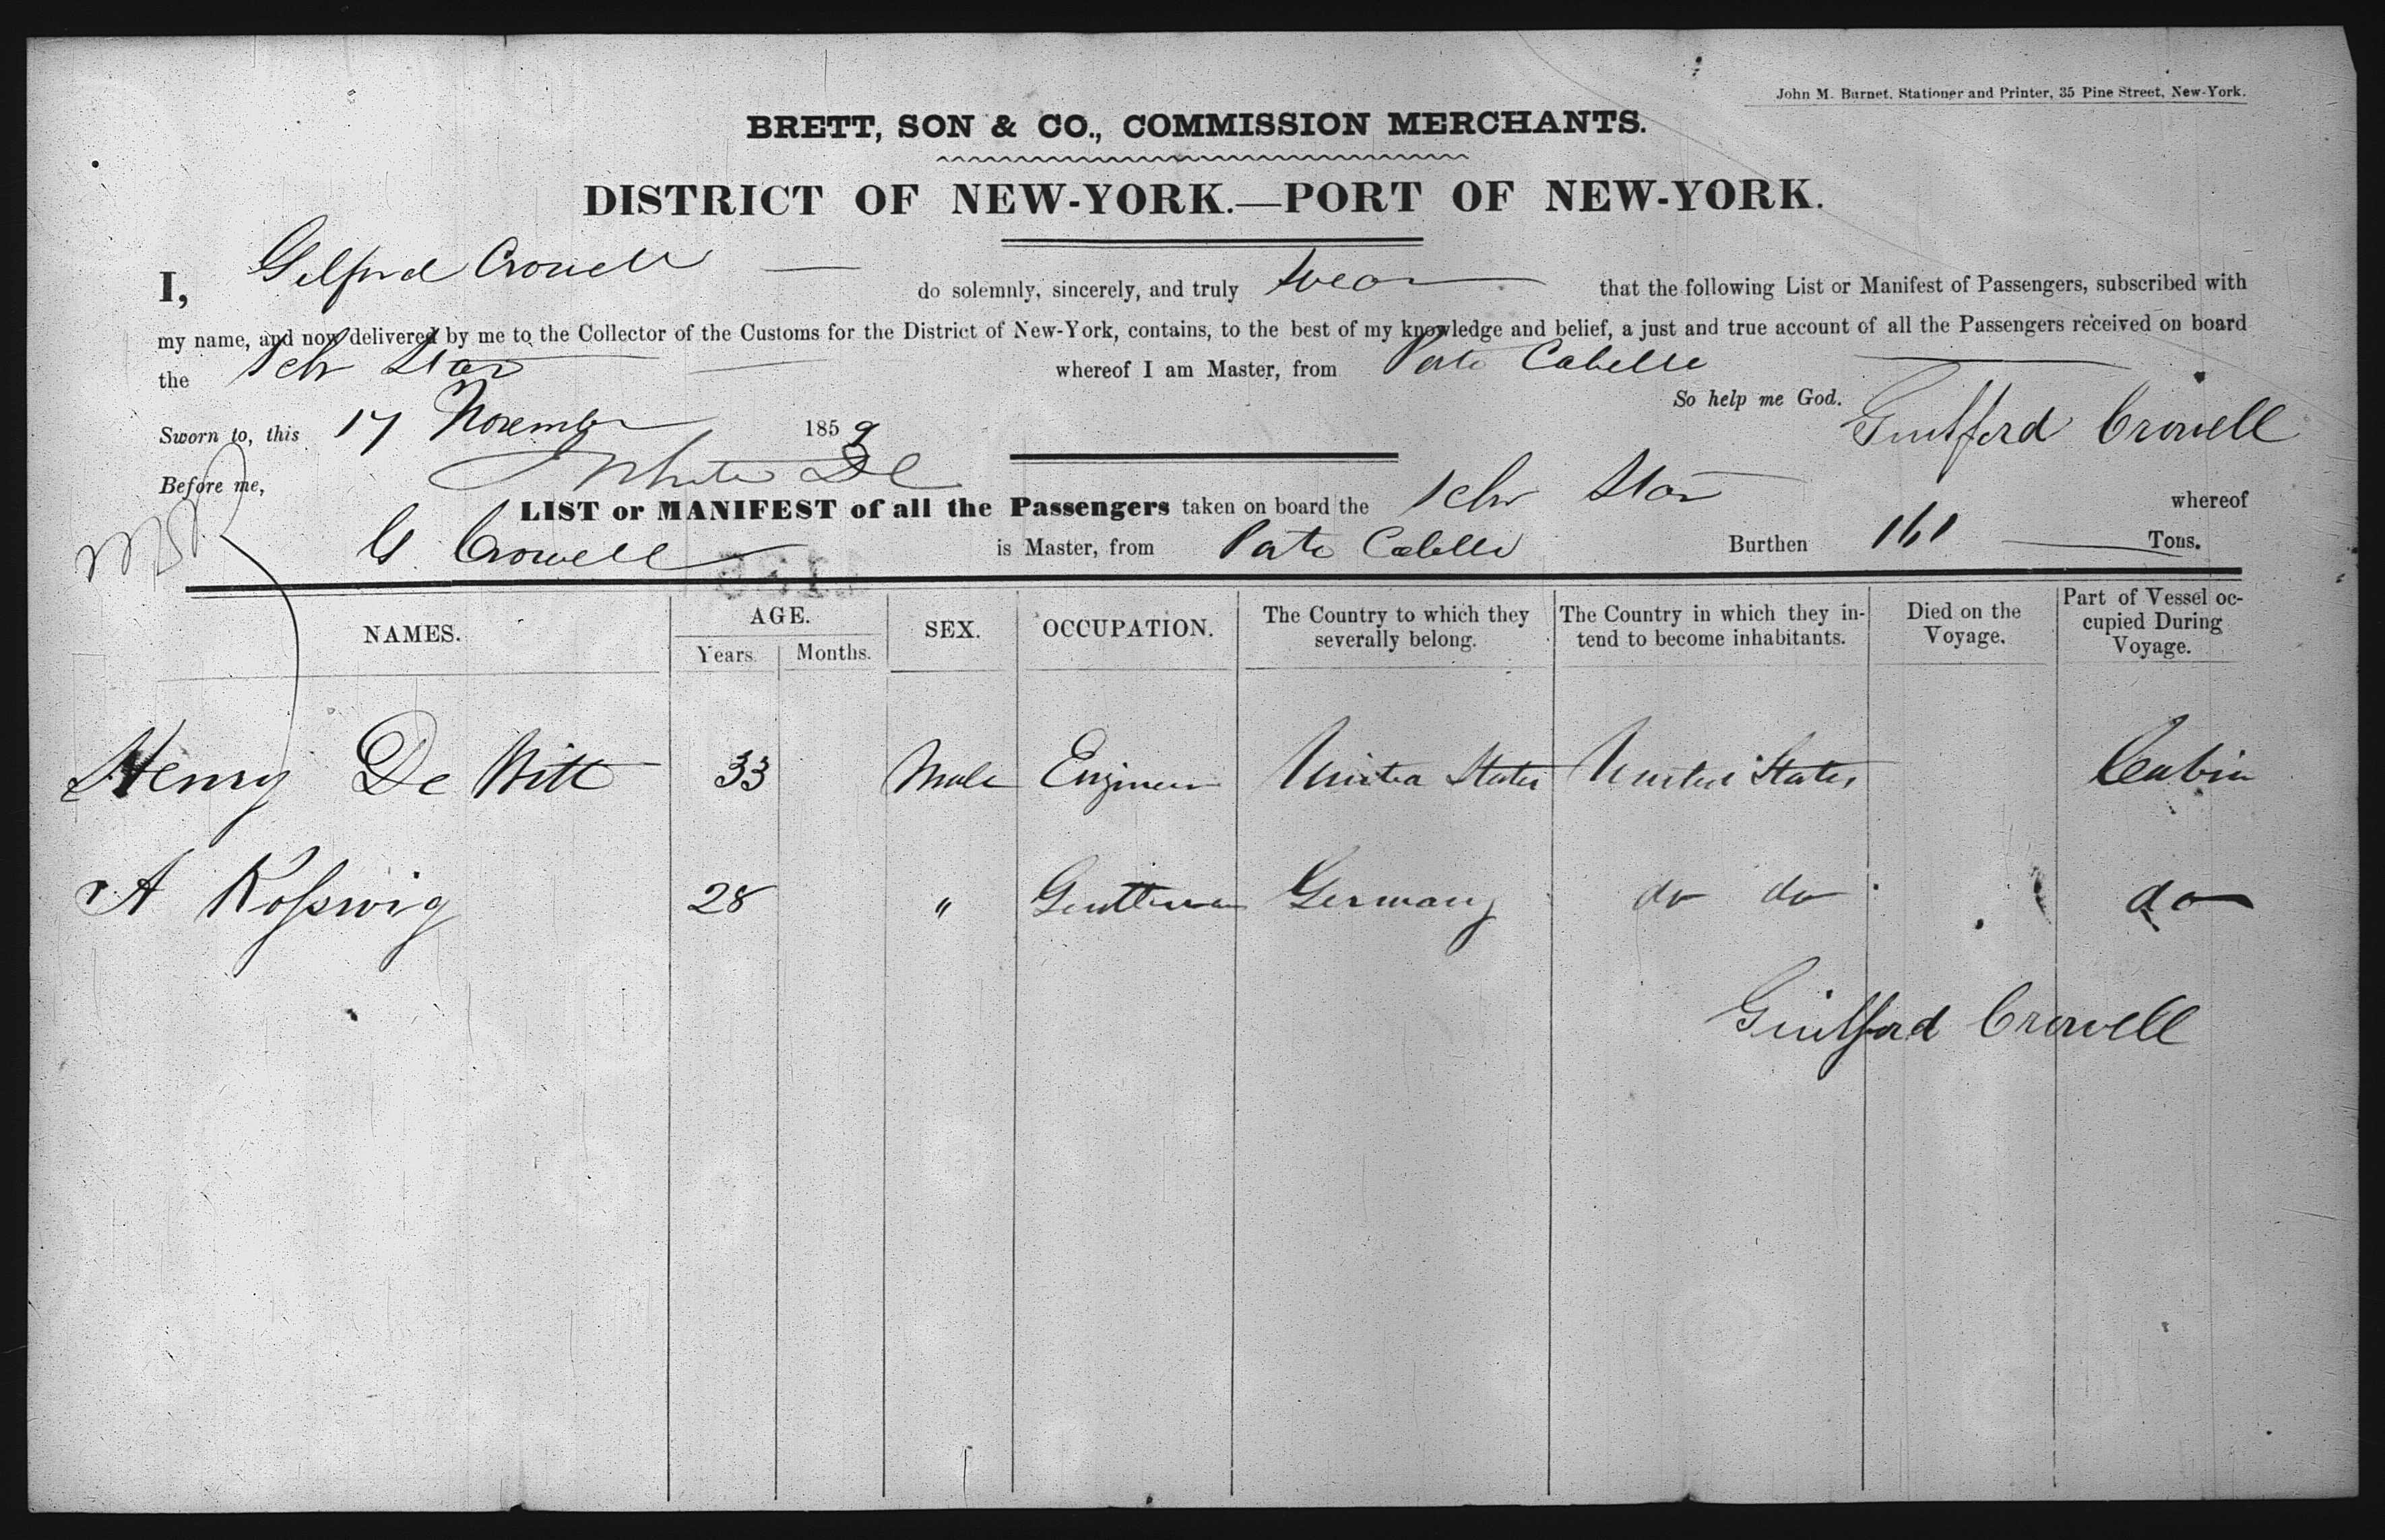 John M. Burnet, Stationer and Printer, 35 Pine Street, New-York.
BRETT, SON & CO., COMMISSION MERCHANTS.
DISTRICT OF NEW-YORK.—PORT OF NEW-YORK.
I, Gilford Crowell do solemnly, sincerely, and truly swear that the following List or Manifest of Passengers, subscribed with
my name, and now delivered by me to the Collector of the Customs for the District of New-York, contains, to the best of my knowledge and belief, a just and true account of all the Passengers received on board
the Schr Star whereof I am Master, from Porto Cabello
So help me God.
Sworn to, this 17 November 1859 Guilford Crowell
Before me, White DC
LIST or MANIFEST of all the Passengers taken on board the Schr Star whereof
G Crowell is Master, from Porto Cabello Burthen 161 Tons.
NAMES. AGE. Years. Months. SEX. OCCUPATION. The Country to which they severally belong. The Country in which they intend to become inhabitants. Died on the Voyage. Part of Vessel occupied During Voyage.
Henry De Witt 33 Male Engineer United States United States Cabin
A Rosswig 28 " Gentleman Germany do do do
Guilford Crowell